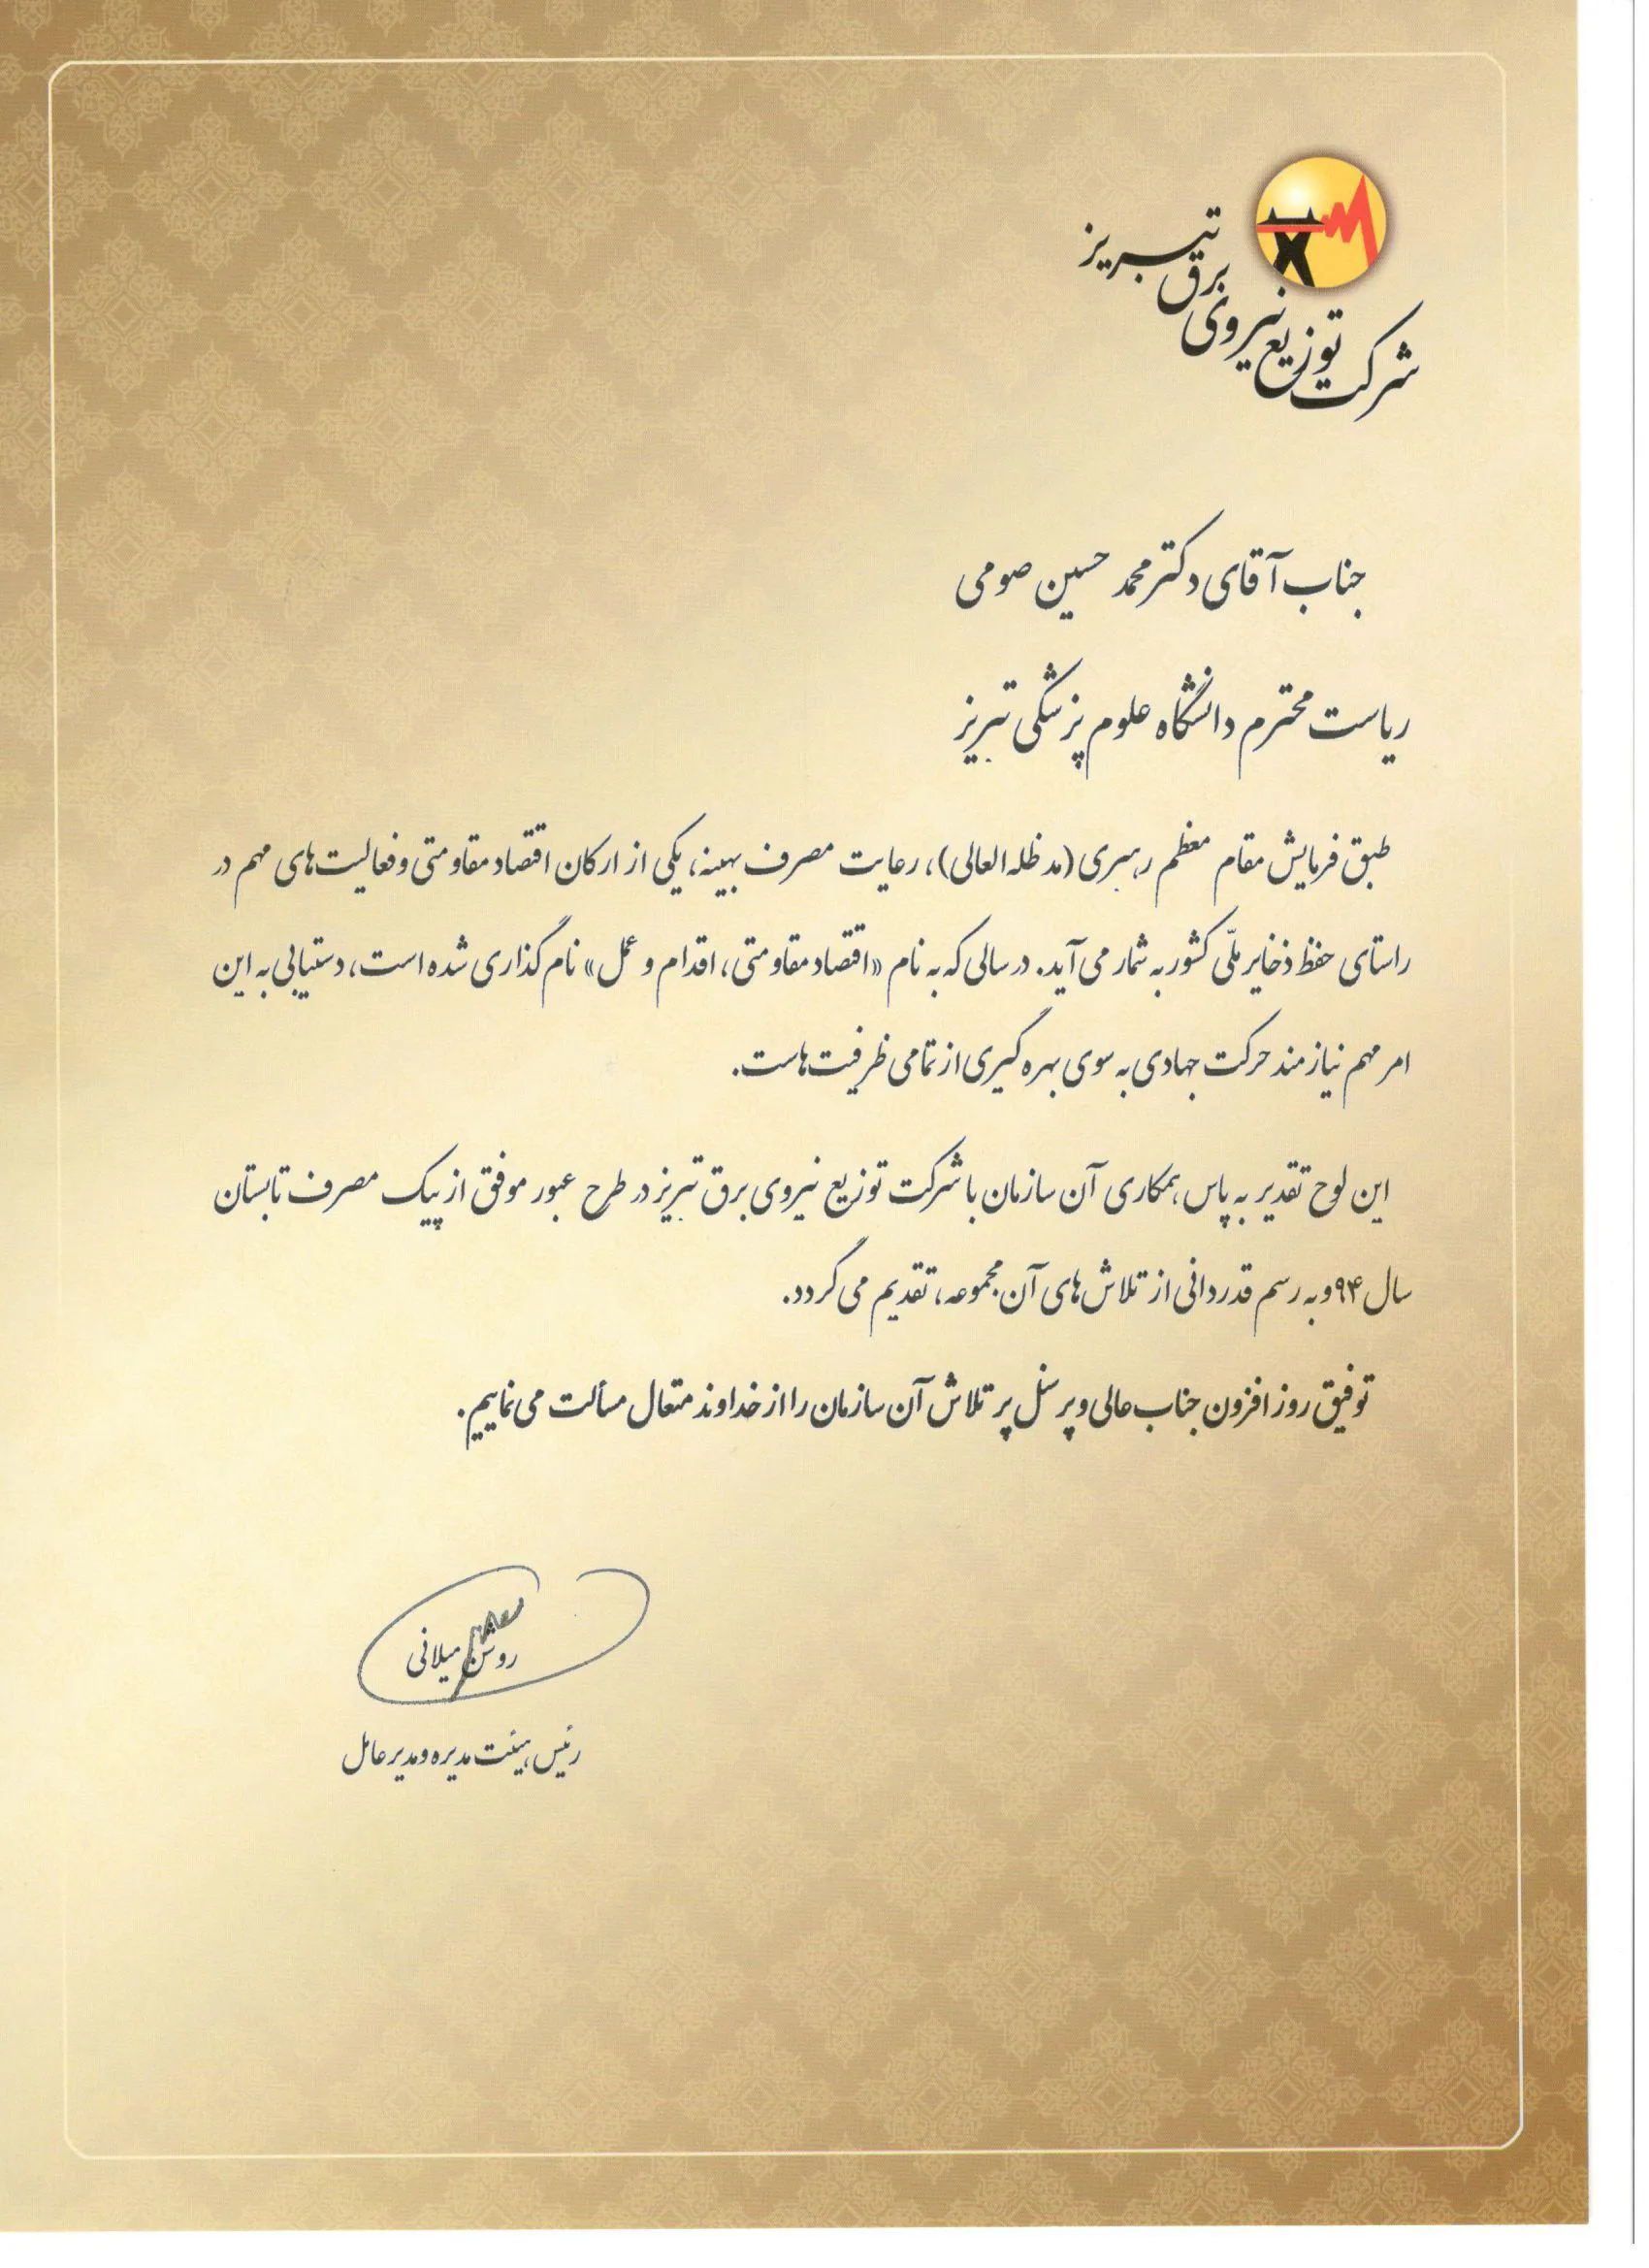 شرکت توزیع نیروی برق تبریز
جناب آقای دکتر محمد حسین صومی
ریاست محترم دانشگاه علوم پزشکی تبریز
طبق فرمایش مقام معظم رهبری (مد ظله العالی)، رعایت مصرف بهینه، یکی از ارکان اقتصاد مقاومتی و فعالیت‌های مهم در
راستای حفظ ذخایر ملّی کشور به شمار می آید. در سالی که به نام «اقتصاد مقاومتی، اقدام و عمل» نام گذاری شده است، دستیابی به این
امر مهم نیازمند حرکت جهادی به سوی بهره گیری از تمامی ظرفیت هاست.
این لوح تقدیر به پاس همکاری آن سازمان با شرکت توزیع نیروی برق تبریز در طرح عبور موفق از پیک مصرف تابستان
سال ۹۴ و به رسم قدردانی از تلاش های آن مجموعه، تقدیم می گردد.
توفیق روز افزون جناب عالی و پرسنل پر تلاش آن سازمان را از خداوند متعال مسألت می نماییم.
روشن میلانی
رئیس هیئت مدیره و مدیر عامل